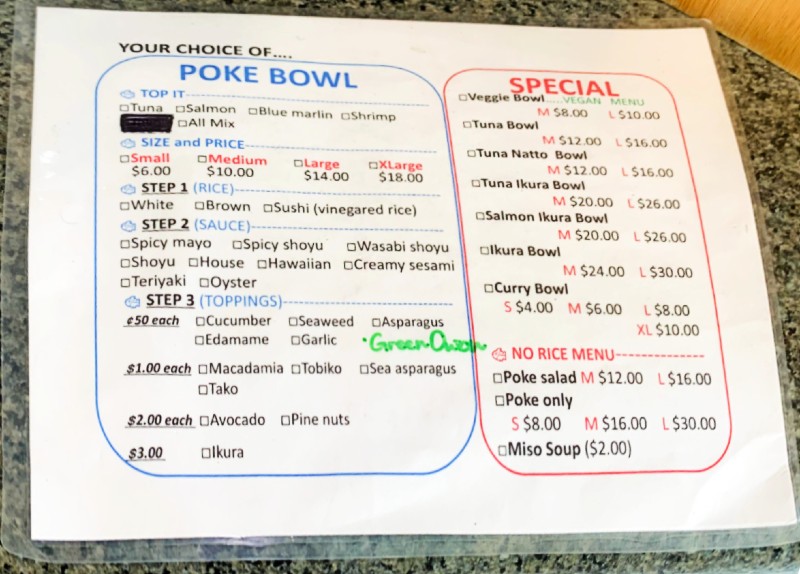 YOUR CHOICE OF....
POKE BOWL
TOP IT
Tuna Salmon Blue marlin Shrimp
All Mix
SIZE and PRICE
Small Medium Large XLarge
$6.00 $10.00 $14.00 $18.00
STEP 1 (RICE)
White Brown Sushi (vinegared rice)
STEP 2 (SAUCE)
Spicy mayo Spicy shoyu Wasabi shoyu
Shoyu House Hawaiian Creamy sesami
Teriyaki Oyster
STEP 3 (TOPPINGS)
¢50 each Cucumber Seaweed Asparagus
Edamame Garlic ·Green Onion
$1.00 each Macadamia Tobiko Sea asparagus
Tako
$2.00 each Avocado Pine nuts
$3.00 Ikura
SPECIAL
Veggie Bowl.....VEGAN MENU
M $8.00 L $10.00
Tuna Bowl
M $12.00 L $16.00
Tuna Natto Bowl
M $12.00 L $16.00
Tuna Ikura Bowl
M $20.00 L $26.00
Salmon Ikura Bowl
M $20.00 L $26.00
Ikura Bowl
M $24.00 L $30.00
Curry Bowl
S $4.00 M $6.00 L $8.00
XL $10.00
NO RICE MENU
Poke salad M $12.00 L $16.00
Poke only
S $8.00 M $16.00 L $30.00
Miso Soup ($2.00)